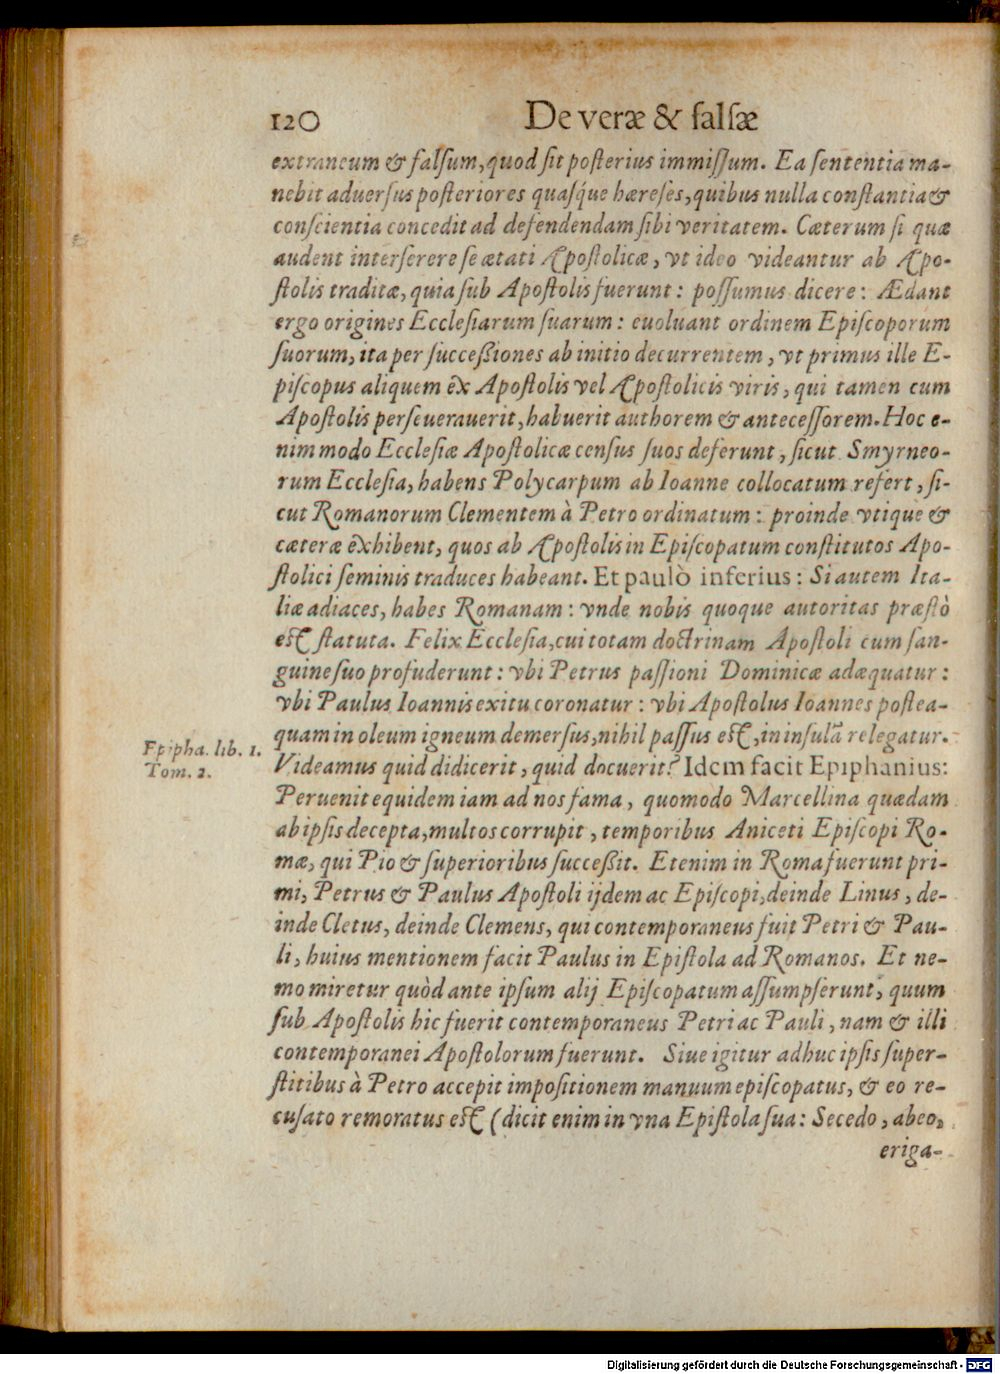 120 De veræ & falsæ
extraneum & falsum, quod sit posterius immissum. Ea sententia ma-
nebit aduersus posteriores quasq́ue hæreses, quibus nulla constantia &
conscientia concedit ad defendendam sibi veritatem. Cæterum si quæ
audent interserere se ætati Apostolicæ, vt ideo videantur ab Apo-
stolis traditæ, quia sub Apostolis fuerunt: possumus dicere: Ædant
ergo origines Ecclesiarum suarum: euoluant ordinem Episcoporum
suorum, ita per successiones ab initio decurrentem, vt primus ille E-
piscopus aliquem ex Apostolis vel Apostolicis viris, qui tamen cum
Apostolis perseuerauerit, habuerit authorem & antecessorem. Hoc e-
nim modo Ecclesiæ Apostolicæ census suos deferunt, sicut Smyrneo-
rum Ecclesia, habens Polycarpum ab Ioanne collocatum refert, si-
cut Romanorum Clementem à Petro ordinatum: proinde vtique &
cæteræ exhibent, quos ab Apostolis in Episcopatum constitutos Apo-
stolici seminis traduces habeant. Et paulò inferius: Si autem Ita-
liæ adiaces, habes Romanam: vnde nobis quoque autoritas præstò
est statuta. Felix Ecclesia, cui totam doctrinam Apostoli cum san-
guine suo profuderunt: vbi Petrus passioni Dominicæ adæquatur:
vbi Paulus Ioannis exitu coronatur: vbi Apostolus Ioannes postea-
quam in oleum igneum demersus, nihil passus est, in insulã relegatur.
Epipha. lib. 1.
Tom. 2.
Videamus quid didicerit, quid docuerit? Idem facit Epiphanius:
Peruenit equidem iam ad nos fama, quomodo Marcellina quædam
ab ipsis decepta, multos corrupit, temporibus Aniceti Episcopi Ro-
mæ, qui Pio & superioribus successit. Etenim in Roma fuerunt pri-
mi, Petrus & Paulus Apostoli ijdem ac Episcopi, deinde Linus, de-
inde Cletus, deinde Clemens, qui contemporaneus fuit Petri & Pau-
li, huius mentionem facit Paulus in Epistola ad Romanos. Et ne-
mo miretur quòd ante ipsum alij Episcopatum assumpserunt, quum
sub Apostolis hic fuerit contemporaneus Petri ac Pauli, nam & illi
contemporanei Apostolorum fuerunt. Siue igitur adhuc ipsis super-
stitibus à Petro accepit impositionem manuum episcopatus, & eo re-
cusato remoratus est (dicit enim in vna Epistola sua: Secedo, abeo,
eriga-
Digitalisierung gefördert durch die Deutsche Forschungsgemeinschaft - DFG